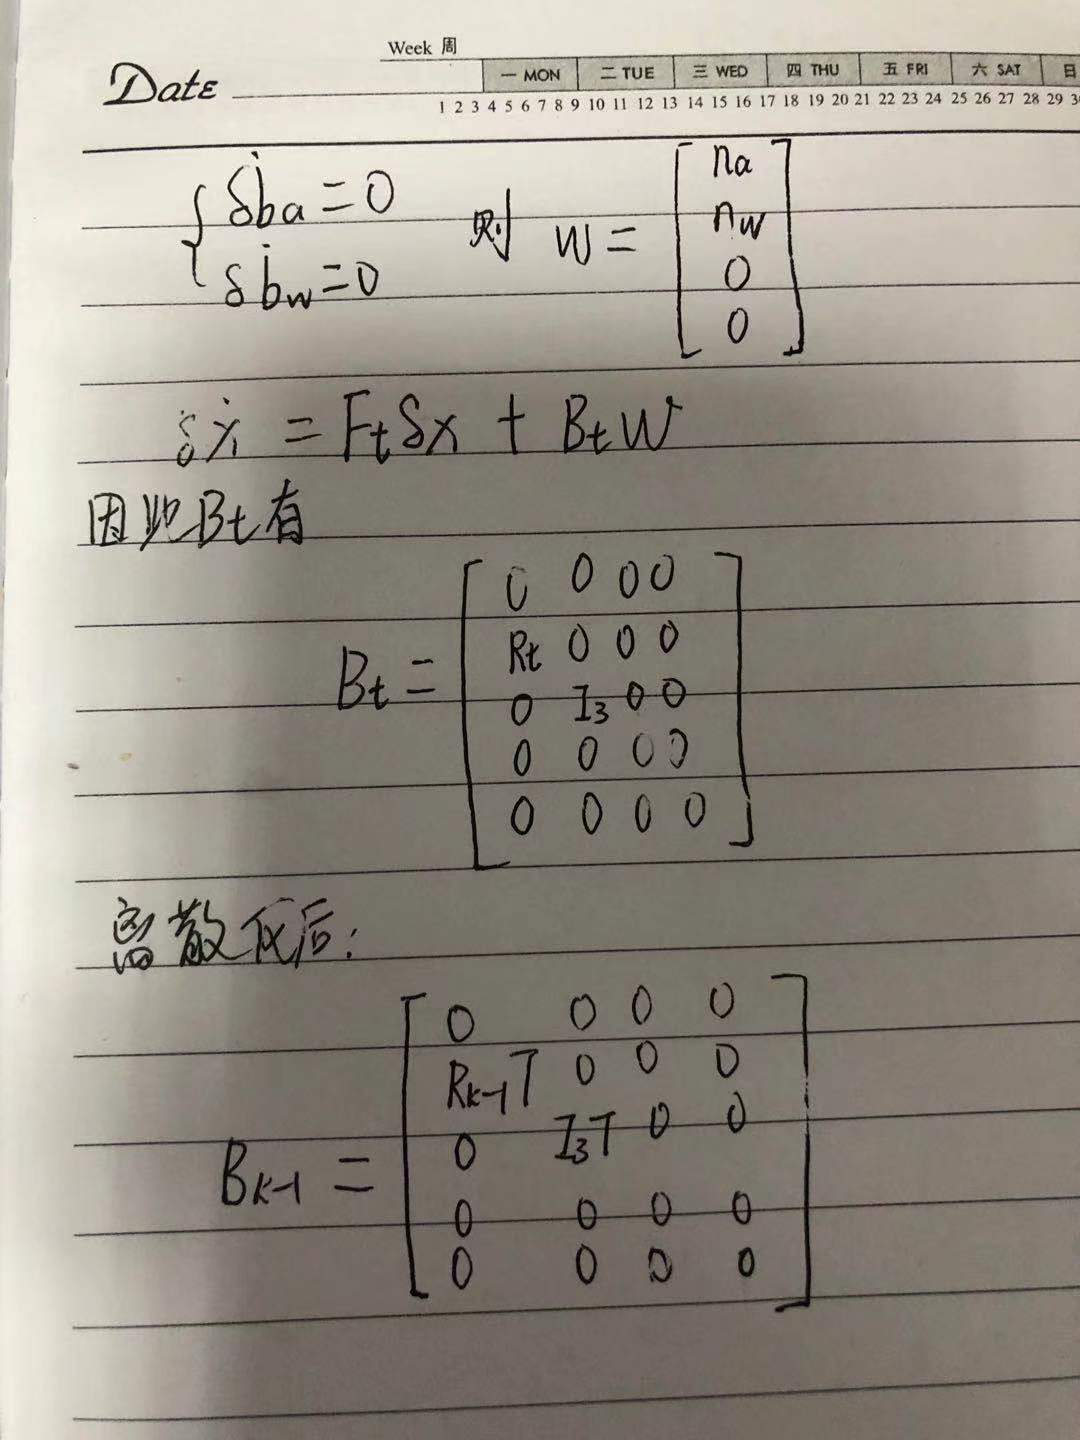 Week 周
Date 一 MON 二 TUE 三 WED 四 THU 五 FRI 六 SAT 日
1 2 3 4 5 6 7 8 9 10 11 12 13 14 15 16 17 18 19 20 21 22 23 24 25 26 27 28 29 30
{ δḃa = 0
δḃw = 0
则 W = [ na
nw
0
0 ]
δẋ = Ft δx + Bt W
因此Bt有
Bt = [ 0 0 0 0
Rt 0 0 0
0 I3 0 0
0 0 0 0
0 0 0 0 ]
离散化后:
Bk-1 = [ 0 0 0 0
Rk-1T 0 0 0
0 I3T 0 0
0 0 0 0
0 0 0 0 ]